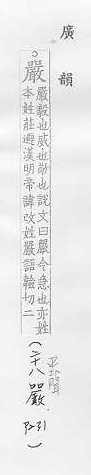 廣韻
嚴
嚴毅也威也敬也說文曰嚴令急也亦姓
本姓莊避漢明帝諱改姓嚴語𩏩切二
(二十八嚴,